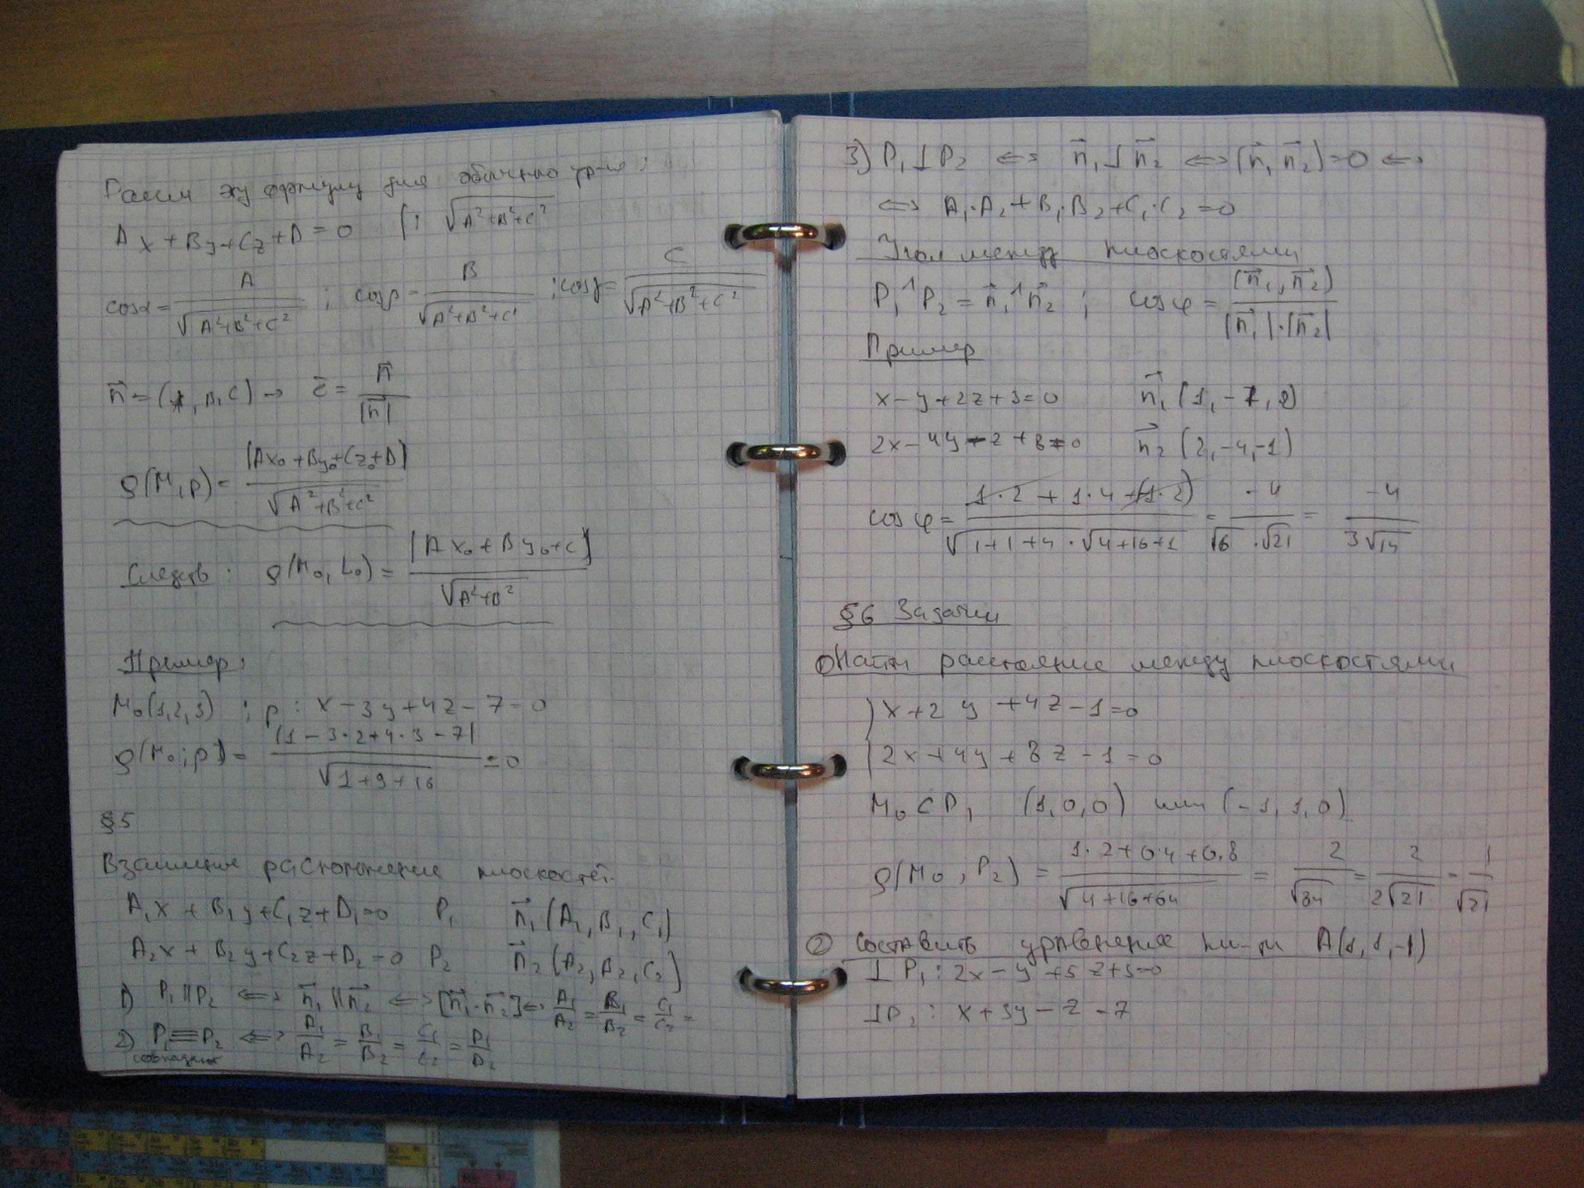 эту формулу для
Ax + By + Cz + D = 0 | : √(A²+B²+C²)
cosα = A/√(A²+B²+C²) ; cosβ = B/√(A²+B²+C²) ; cosγ = C/√(A²+B²+C²)
n⃗ = (A, B, C) → = n⃗/|n⃗|
ρ(M, p) = |Ax₀+By₀+Cz₀+D|/√(A²+B²+C²)
Следств: ρ(M₀, L₀) = |Ax₀+By₀+C|/√(A²+B²)
Пример:
M₀(1,2,3) ; p : x − 3y + 4z − 7 = 0
ρ(M₀; p) = |1 − 3·2 + 4·3 − 7|/√(1+9+16) = 0
§5
Взаимное расположение плоскостей
A₁x + B₁y + C₁z + D₁ = 0 P₁ n⃗₁(A₁, B₁, C₁)
A₂x + B₂y + C₂z + D₂ = 0 P₂ n⃗₂(A₂, C₂)
1) P₁ || P₂ ⇔ n⃗₁ || n⃗₂ ⇔ [n⃗₁·n⃗₂] ⇔ A₁/A₂ = B₁/B₂ = C₁/C₂ =
2) P₁ ≡ P₂ ⇔ A₁/A₂ = B₁/B₂ = C₁/C₂ = D₁/D₂
3) P₁ ⊥ P₂ ⇔ n⃗₁ ⊥ n⃗₂ ⇔ (n⃗₁, n⃗₂) = 0 ⇔
⇔ A₁·A₂ + B₁·B₂ + C₁·C₂ = 0
Угол между плоскостями
P₁^P₂ = n⃗₁^n⃗₂ ; cos φ = (n⃗₁, n⃗₂)/|n⃗₁|·|n⃗₂|
Пример
x − y + 2z + 3 = 0 n⃗₁(1, −1, 2)
2x − 4y − z + 8 = 0 n⃗₂(2, −4, −1)
cos φ = /√(1+1+4)·√(4+16+1) = −4/√6·√21 = −4/3√14
§6 Задачи
① Найти расстояние между плоскостями
x + 2y + 4z − 1 = 0
2x + 4y + 8z − 1 = 0
M₀ ⊂ P₁ (1,0,0) или (−1, 1, 0)
ρ(M₀, P₂) = 1·2+0·4+0·8/√(4+16+64) = 2/√84 = 2/2√21 = 1/√21
② Составить уравнение пл-ти A(1,1,−1)
⊥ P₁ : 2x − y + 5z + 3 = 0
⊥ P₂ : x + 3y − z − 7